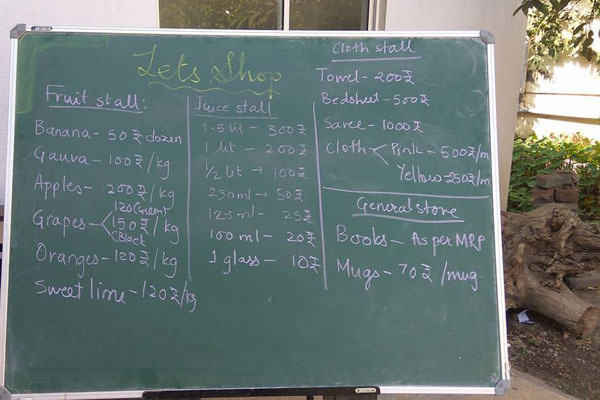 Lets Shop
Fruit stall:
Banana - 50 ₹ dozen
Gauva - 100 ₹/kg
Apples - 200 ₹/kg
120 (Green)
Grapes < 150 ₹/kg
(Black
Oranges - 120 ₹/kg
Sweet lime - 120 ₹/kg
Juice stall
1.5 lit - 300 ₹
1 lit - 200 ₹
1/2 lit - 100 ₹
250 ml - 50 ₹
125 ml - 25 ₹
100 ml - 20 ₹
1 glass - 10 ₹
Cloth stall
Towel - 200 ₹
Bedsheet - 500 ₹
Saree - 1000 ₹
Cloth < Pink - 500 ₹/m
Yellow - 250 ₹/m
General store
Books - As per MRP
Mugs - 70 ₹ /mug